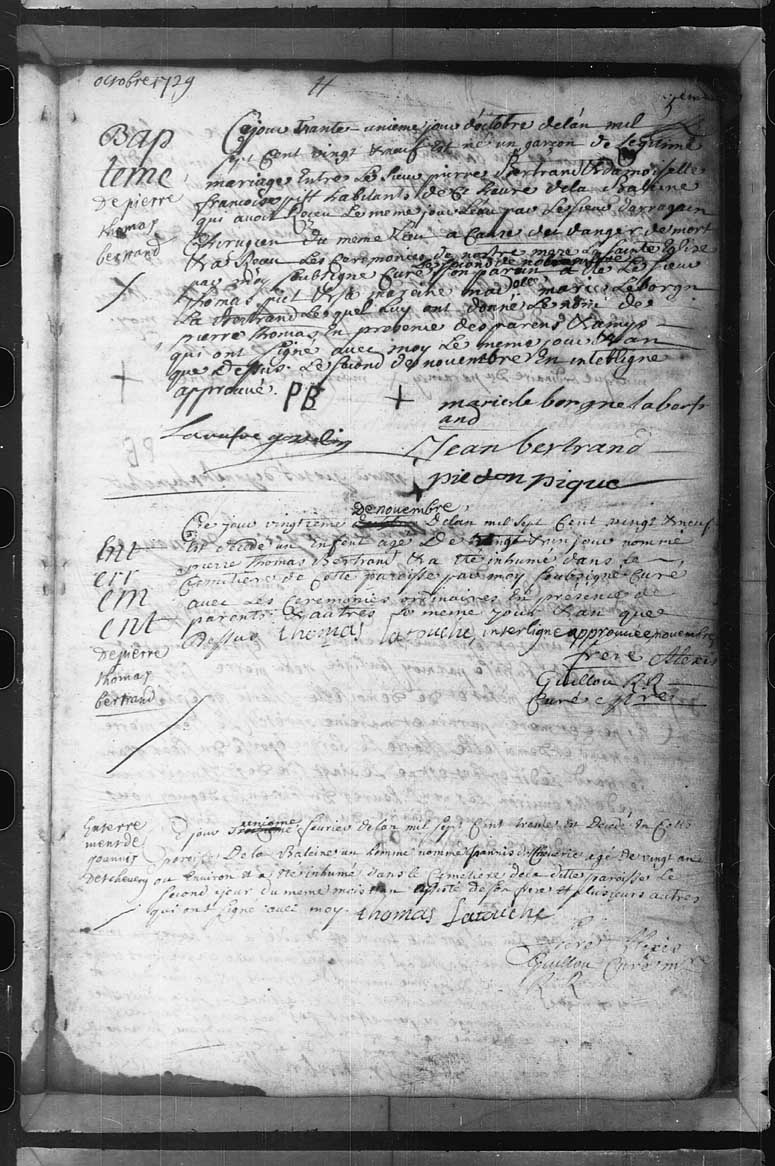 octobre 1729
4
5eme
Bap
teme
de pierre
thomas
bertrand
Cejour trante-unieme jour d'octobre de lan mil
sept Cent vingt & neuf est né un garçon de legitime
mariage Entre Le Sieur pierre Bertrand & damoiselle
francoise pitt habitants de Ce havre de la Baleine
qui avoit Receu Le meme jour L'eau par Le Sieur darragain
chirugien du meme lieu a Cause du danger de mort
& a Receu Les Ceremonies de nostre mere La Sainte Eglise
par moy Soubsigne Curé son parain a été Le Sieur
thomas pitt & sa mareine madelle marie Leborgn
La Bertrand Lesquel Luy ont donné Le nom de
pierre thomas En presence des parens & amys
qui ont Signe avec moy Le meme jour & an
que Dessus. Le second de novembre En interligne
approuvé. PB + marie le borgne labertr
and
Jean bertrand
piedonpique
De novembre
Ce jour vingtieme Delan mil Sept Cent vingt & neuf
Est décédé un Enfent agé De vingt & un jour nommé
pierre Thomas Bertrand & a été inhumé dans Le
Cemitiere de Cette paroisse par moy Soubsigné Curé
avec Les Ceremonies ordinaires En présence de
parents & autres Le meme jour & an que
Dessus thomas Latouche, interligne approuvée novembre
frere Alexis
Guillou RR
Curé
Ent
err
em
ent
De pierre
thomas
bertrand
Enterre
ment de
joannis
Detcheverry
Cejour unieme feurier de lan mil Sept Cent trante Est Décédé En Cette
paroisse De la Baleine un homme nommé joannis agé de vingt an
ou Environ et a été inhumé dans le Cemetiere de la ditte paroisse Le
Second jour du meme mois & an assisté de son frere & plusieurs autres
qui ont signé avec moy. thomas Latouche
frere Alexis
Guillou Curé
R.R